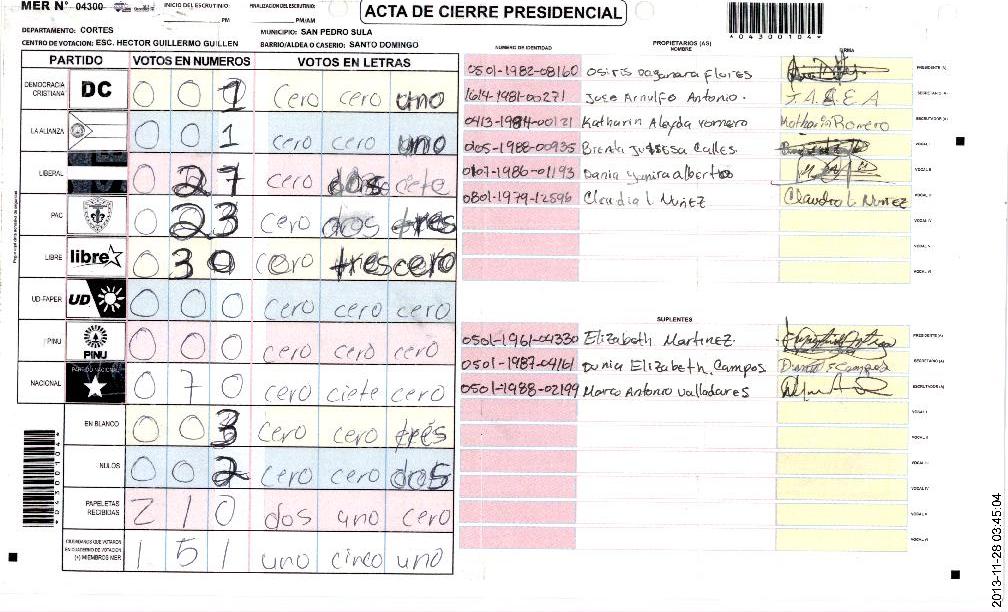 MER N° 04300 INICIO DEL ESCRUTINIO: PM FINALIZACION DEL ESCRUTINIO: PM/AM ACTA DE CIERRE PRESIDENCIAL
*04300104*
DEPARTAMENTO: CORTES MUNICIPIO: SAN PEDRO SULA
CENTRO DE VOTACION: ESC. HECTOR GUILLERMO GUILLEN BARRIO/ALDEA O CASERIO: SANTO DOMINGO
PARTIDO VOTOS EN NUMEROS VOTOS EN LETRAS
DEMOCRACIA CRISTIANA DC 0 0 1 cero cero uno
LA ALIANZA 0 0 1 cero cero uno
LIBERAL 0 27 cero dos ciete
PAC 0 23 cero dos tres
LIBRE libre 0 30 cero tres cero
UD-FAPER UD 0 0 0 cero cero cero
PINU PINU 0 0 0 cero cero cero
NACIONAL PARTIDO NACIONAL 0 7 0 cero ciete cero
EN BLANCO 0 0 3 cero cero trés
NULOS 0 0 2 cero cero dos
PAPELETAS RECIBIDAS 2 1 0 dos uno cero
CIUDADANOS QUE VOTARON EN CUADERNO DE VOTACION (+) MIEMBROS MER 1 5 1 uno cinco uno
*04300104*
NUMERO DE IDENTIDAD PROPIETARIOS (AS) NOMBRE FIRMA
0501-1982-08160 Osiris Dagenara Flores PRESIDENTE (A)
1614-1981-00271 Jose Arnulfo Antonio. J.A.E.A SECRETARIO (A)
0413-1984-00121 Katharin Aleyda romero Katharin Romero ESCRUTADOR (A)
0105-1988-00935 Brenda Calles. VOCAL I
0107-1986-01193 Dania Yamira alberto VOCAL II
0801-1979-12596 Claudia L Nuñez Claudia L Nuñez VOCAL III
VOCAL IV
VOCAL V
VOCAL VI
SUPLENTES
0501-1961-04330 Elizabeth Martinez. PRESIDENTE (A)
0501-1987-04161 Dunia Elizabeth. Campos Dunia E Campos SECRETARIO (A)
0501-1988-02199 Marco Antonio Valladares ESCRUTADOR (A)
VOCAL I
VOCAL II
VOCAL III
VOCAL IV
VOCAL V
VOCAL VI
2013-11-28 03:45:04